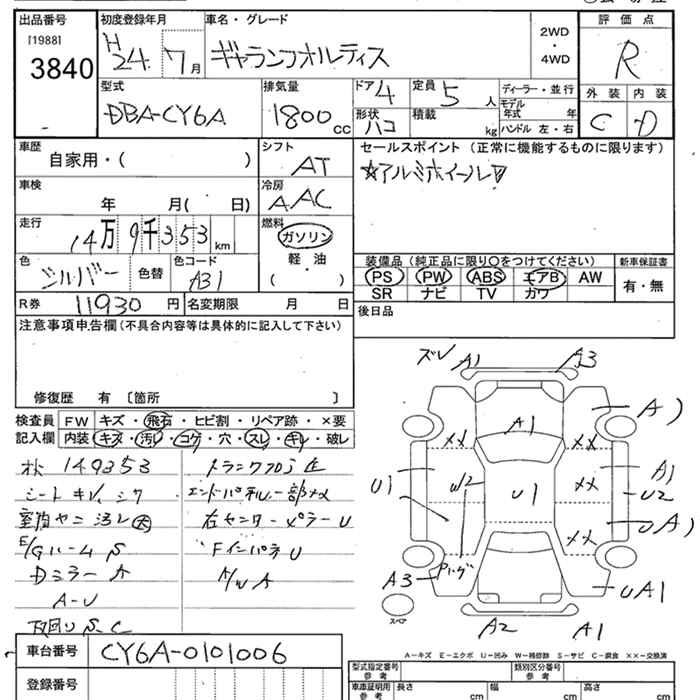 出品番号 初度登録年月 車名・グレード 2WD・4WD 評価点
[1988]
3840 H24 7月 ギャランフォルティス R
型式 排気量 ドア4 定員 5人 ディーラー・並行 外装 内装
DBA-CY6A 1800cc 形状 ハコ 積載 kg モデル年式 年 C D
ハンドル 左・右
車歴 シフト セールスポイント (正常に機能するものに限ります)
自家用・( ) AT ☆アルミホイール▽
車検 冷房
年 月( 日) AAC
走行 燃料
14万9千353km ガソリン
軽・油
( )
色 シルバー 色替 色コード A31
装備品 (純正品に限り○をつけてください) 新車保証書
PS PW ABS エアB AW 有・無
SR ナビ TV カワ
R券 11930円 名変期限 月 日 後日品
注意事項申告欄(不具合内容等は具体的に記入して下さい)
修復歴 有 〔箇所 〕
検査員 FW キズ・飛石・ヒビ割・リペア跡・×要
記入欄 内装 キズ・汚レ・コゲ・穴・スレ・キレ・破レ
149353
シート キレ
E/Gルーム S
Dミラー A
A-U
下回り S、C
エンドパネル一部
右センターピラー U
Fインパネ U
A/W A
ズレ A1 A3
A1 A)
×× ××
A1
U1 W2 U1 ×× U2
UA)
××
A3 UA1
スペア
A2 A1
A-キズ E-エクボ U-凹み W-補修跡 S-サビ C-腐食 ××-交換済
車台番号 CY6A-0101006
登録番号
型式指定番号 参考 類別区分番号 参考
車庫証明用 参考 長さ cm 幅 cm 高さ cm